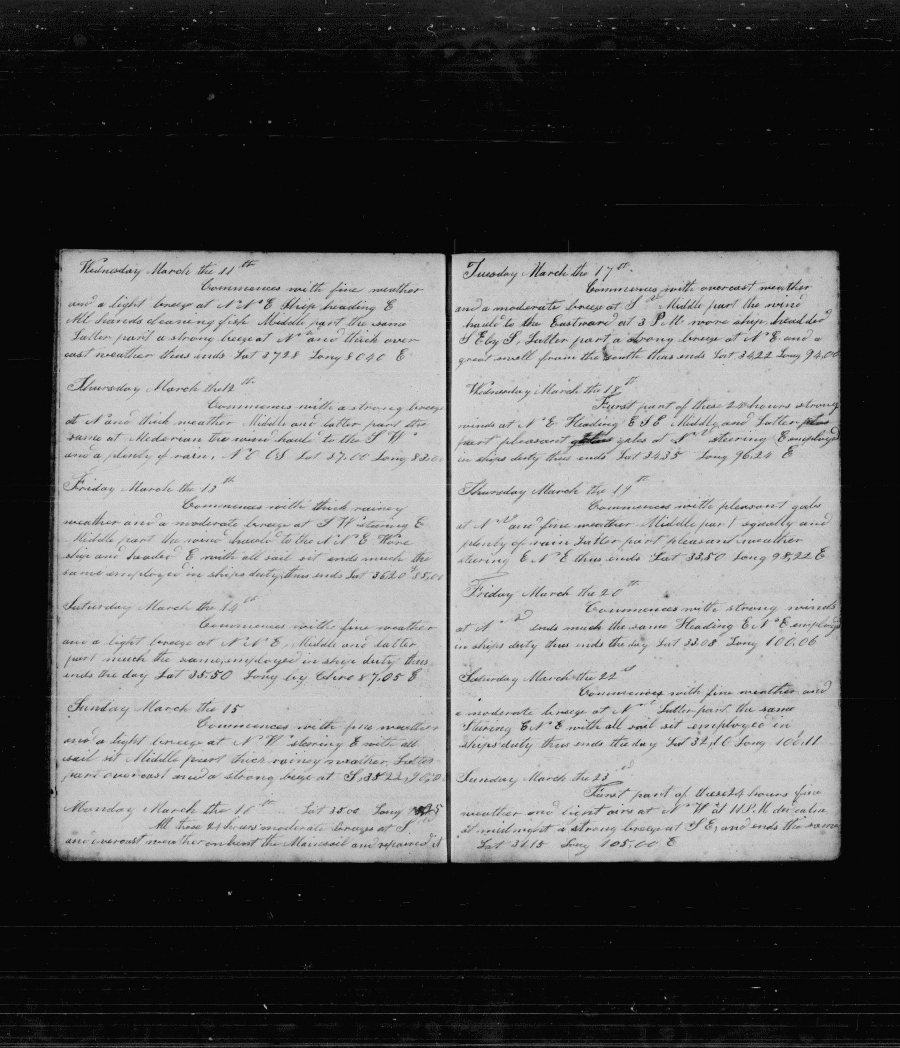 Wednesday March the 11th
Commences with fine weather
and a light breeze at N.N.E Ship heading E
All hands cleaning fish Middle part the same
Latter part a strong breeze at Nd and thick over
cast weather thus ends Lat 3728 Long 8040 E
Thursday March the 12th
Commences with a strong breeze
at N and thick weather Middle and latter part the
same at Mederian the wind hauld to the S Wd
and a plenty of rain, Lat 37.00 Long 83.00
Friday March the 13th
Commences with thick rainey
weather and a moderate breeze at S Wd stering E
Middle part the wind hauled to the N N E Wore
ship and headed E with all sail sit ends much the
same employed in ships duty thus ends Lat 36.20 85,00
Saturday March the 14th
Commences with fine weather
and a light breeze at N N E, Middle and latter
part much the same, employed in ship duty thus
ends the day Lat 35.50 Long by Chro 87,05 E
Sunday March the 15
Commences with fine weather
and a light breeze at N Wd stearing E with all
sail sit Middle part thick rainey weather, Latter
part overcast and a strong breze at S, 35 22, 90,
Monday March the 16th Lat 3500 Long
All these 24 hours moderate breezes at S.
and overcast weather on bent the Mainsail and repaired it
Tuesday March the 17th.
Commences with overcast weather
and a moderate breeze at Sd Middle part the wind
hauld to the Eastward at 3 PM wore ship, headded
S E by S, Latter part a strong breeze at N E. and a
great swell from the South thus ends Lat 3422 Long 94.00
Wednesday March the 18th
Furst part of these 24 hours strong
winds at N E Heading E S E Middle and Latter
part pleasant gales at Nd stering E employed
in ships duty thus ends Lat 34.35 Long 96.24 E
Thursday March the 19th
Commences with pleasant gale
at Nd and fine weather Middle part squally and
plenty of rain Latter part pleasant weather
stering E N E thus ends Lat 33.50 Long 98,22 E
Friday March the 20th
Commences with strong winds
at Nd ends much the same Heading E N E employd
in ships duty thus ends the day Lat 33.08 Long 100.06
Saturday March the 22d
Commences with fine weather and
a moderate breeze at Nd Latter part the same
Stering E N E with all sail sit employed in
ships duty thus ends the day Lat 32,10 Long 10
Sunday March the 23d
Furst part of these 24 hours fine
weather and light airs at N W at 11.P.M. ded calm
at midnight a strong breeze at S E, and ends the same
Lat 31.15 Long 105.00 E